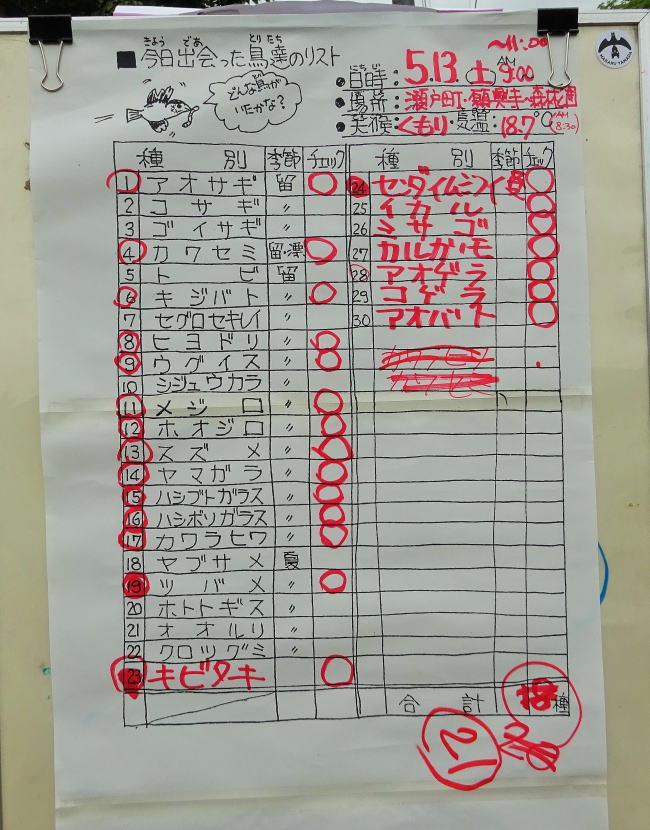 きょう であ とりたち
■今日出会った鳥達のリスト
どんな鳥が
いたかな？
~11:00
にちじ
・日時：5.13.(土)AM9:00
・場所：瀬戸町・願興寺~森林公園
・天候：くもり・気温：18.7℃(AM8:30)
種 別 季節 チェック
1 アオサギ 留 ○
2 コサギ 〃
3 ゴイサギ 〃
4 カワセミ 留・漂 ○
5 トビ 留
6 キジバト 〃 ○
7 セグロセキレイ 〃
8 ヒヨドリ 〃 ○
9 ウグイス 〃 ○
10 シジュウカラ 〃
11 メジロ 〃 ○
12 ホオジロ 〃 ○
13 スズメ 〃 ○
14 ヤマガラ 〃 ○
15 ハシブトガラス 〃 ○
16 ハシボソガラス 〃 ○
17 カワラヒワ 〃 ○
18 ヤブサメ 夏
19 ツバメ 〃 ○
20 ホトトギス 〃
21 オオルリ 〃
22 クロツグミ 〃
23 キビタキ ○
種 別 季節 チェック
24 センダイムシクイ 夏 ○
25 イカル ○
26 ミサゴ ○
27 カルガモ ○
28 アオゲラ ○
29 コゲラ ○
30 アオバト ○
合 計 種
21